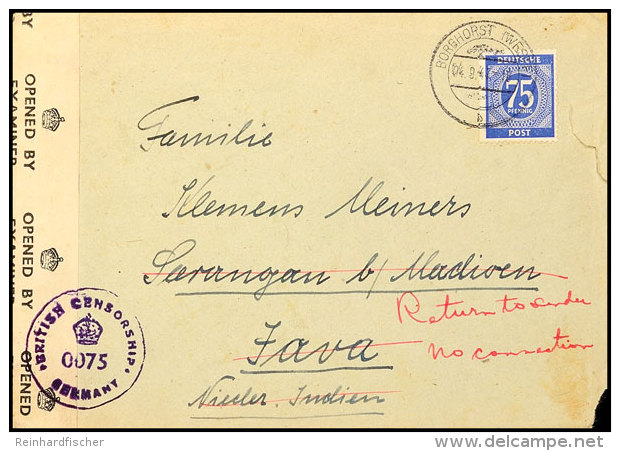 BORGHORST (WES
04.9.4
b
DEUTSCHE
75
PFENNIG
POST
Familie
Klemens Meiners
Sarangan b/ Madioen
Java
Nieder. Indien
Return to sender
no connection
BY
OPENED BY
EXAMINER
OPENED BY
EXAMINER
OPENED
BRITISH CENSORSHIP
0075
GERMANY
Reinhardfischer
delcampe.net